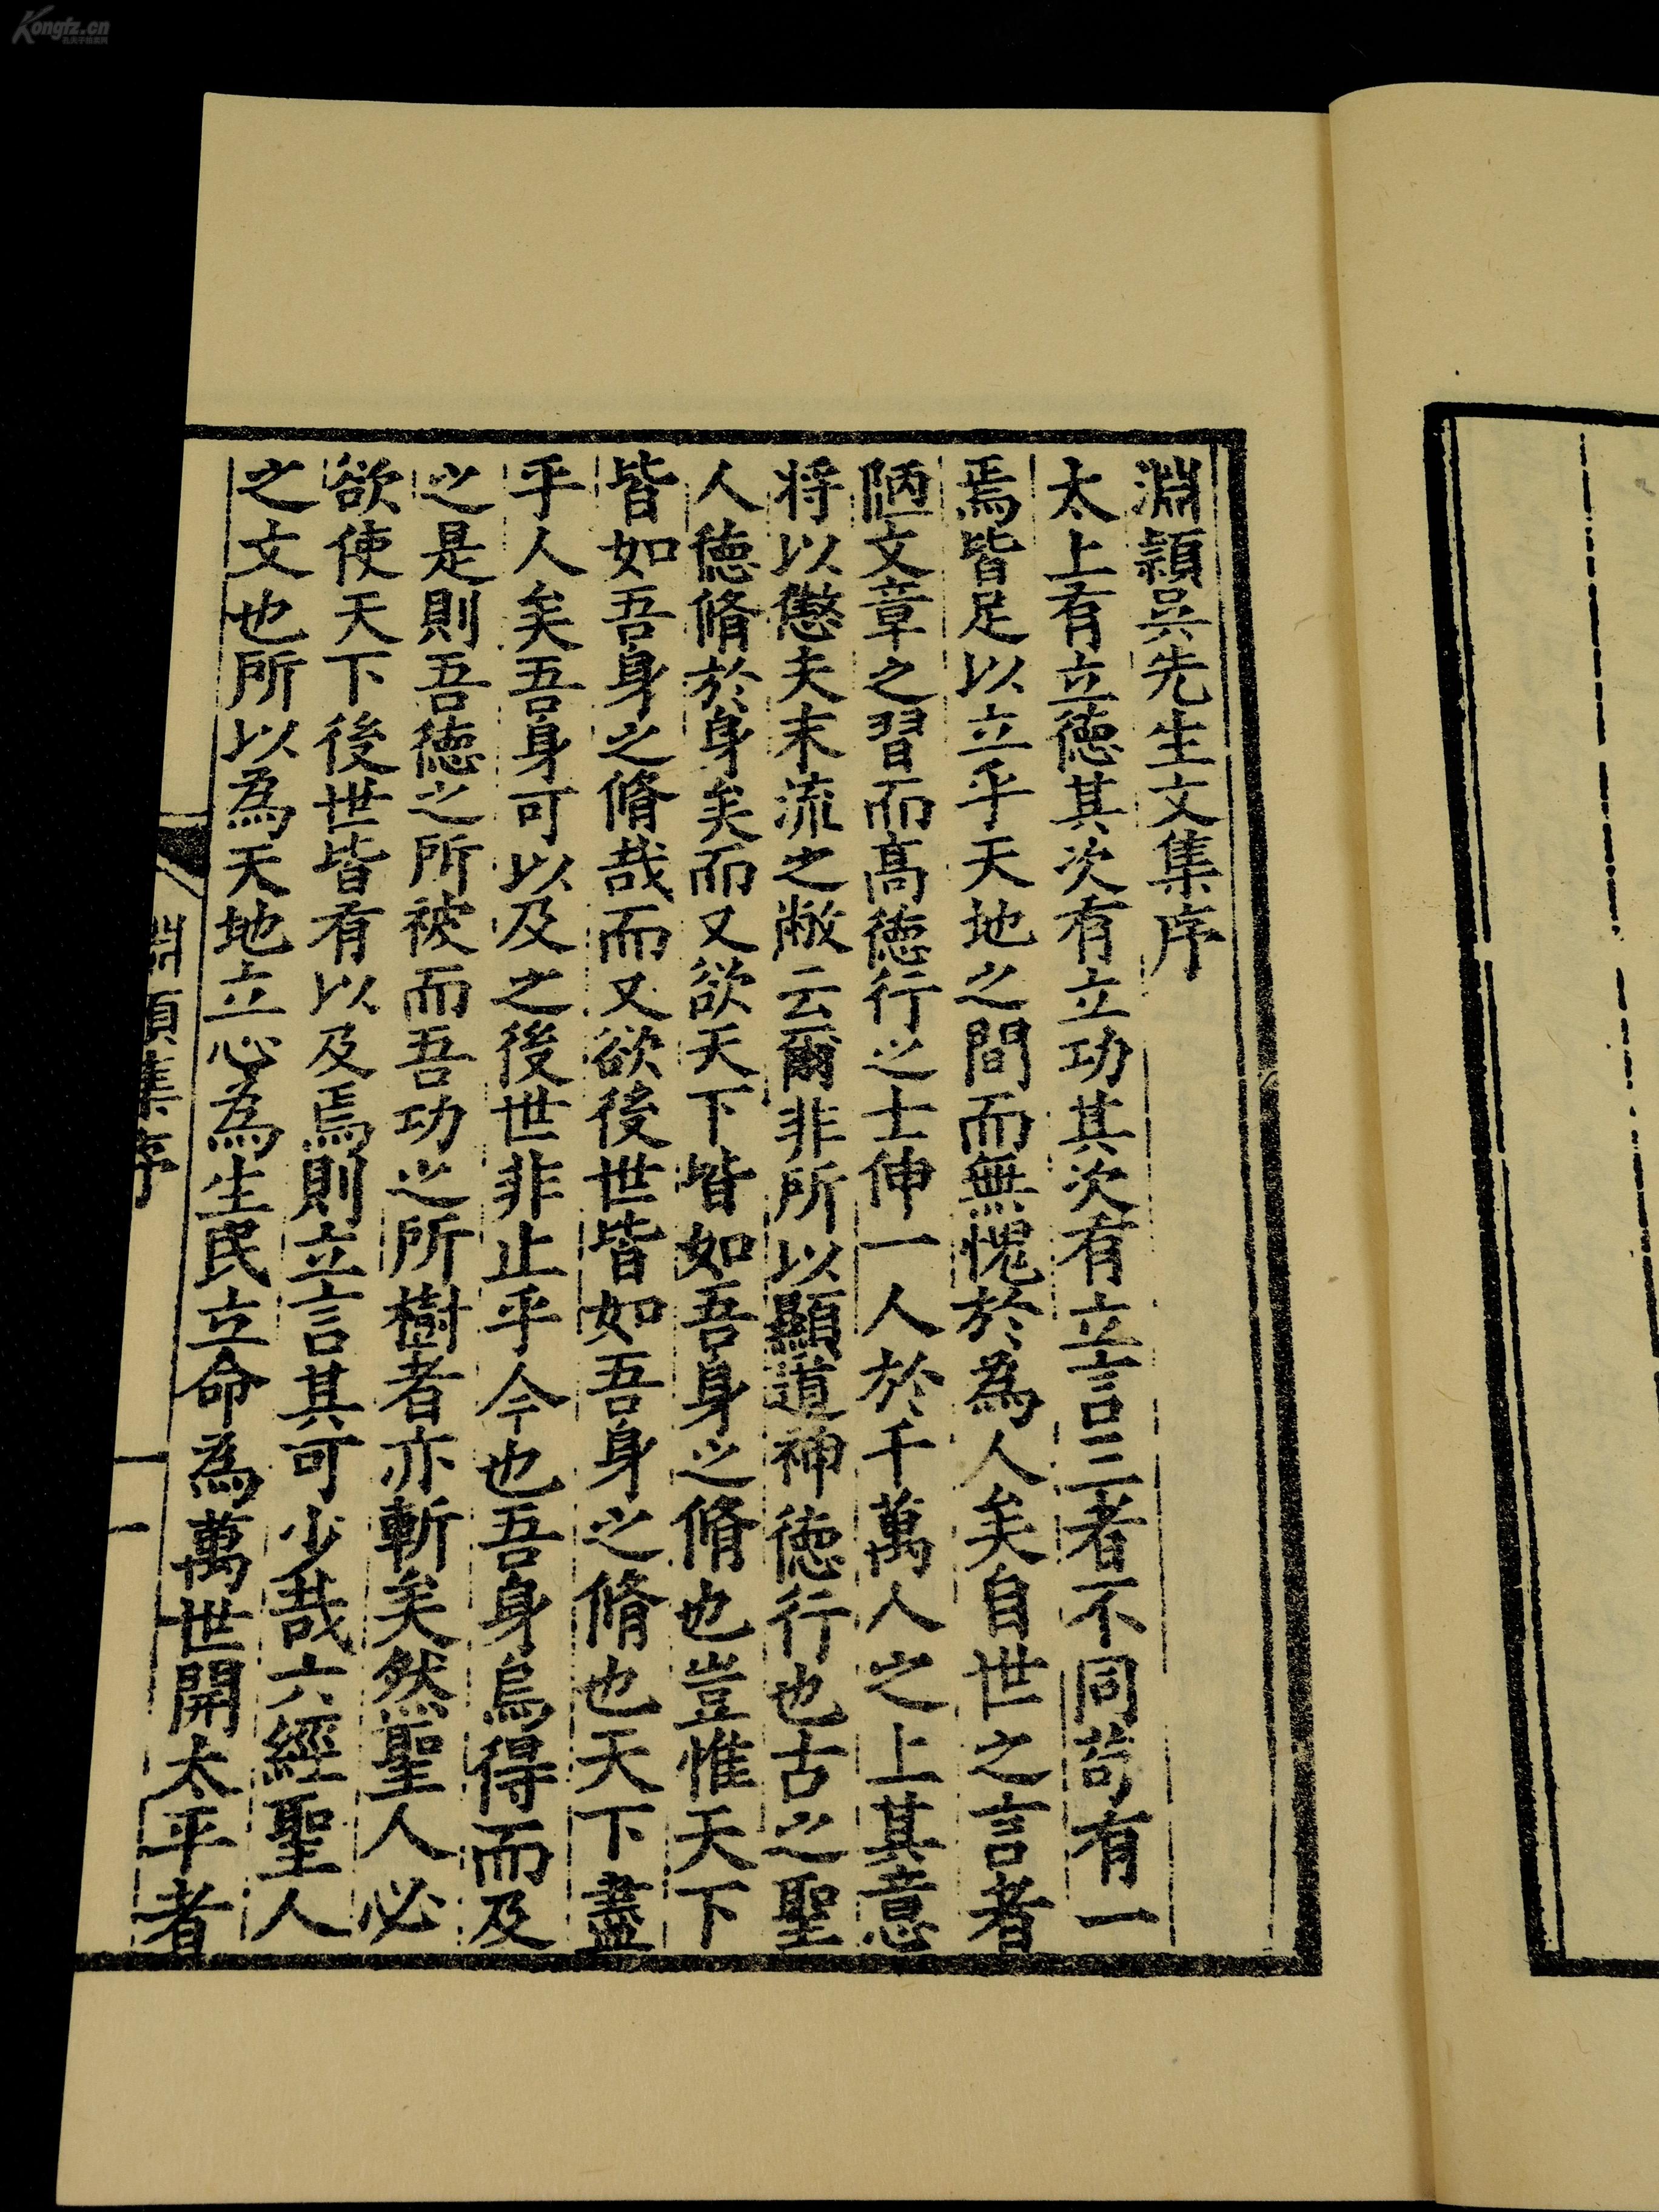 淵穎吳先生文集序
太上有立德其次有立功其次有立言三者不同苟有一
焉皆足以立乎天地之間而無愧於為人矣自世之言者
陋文章之習而高德行之士伸一人於千萬人之上其意
将以懲夫末流之敝云爾非所以顯道神德行也古之聖
人德脩於身矣而又欲天下皆如吾身之脩也豈惟天下
皆如吾身之脩哉而又欲後世皆如吾身之脩也天下盡
乎人矣吾身可以及之後世非止乎今也吾身烏得而及
之是則吾德之所被而吾功之所樹者亦斬矣然聖人必
欲使天下後世皆有以及焉則立言其可少哉六經聖人
之文也所以為天地立心為生民立命為萬世開太平者
淵穎集序
一
Kongfz.cn